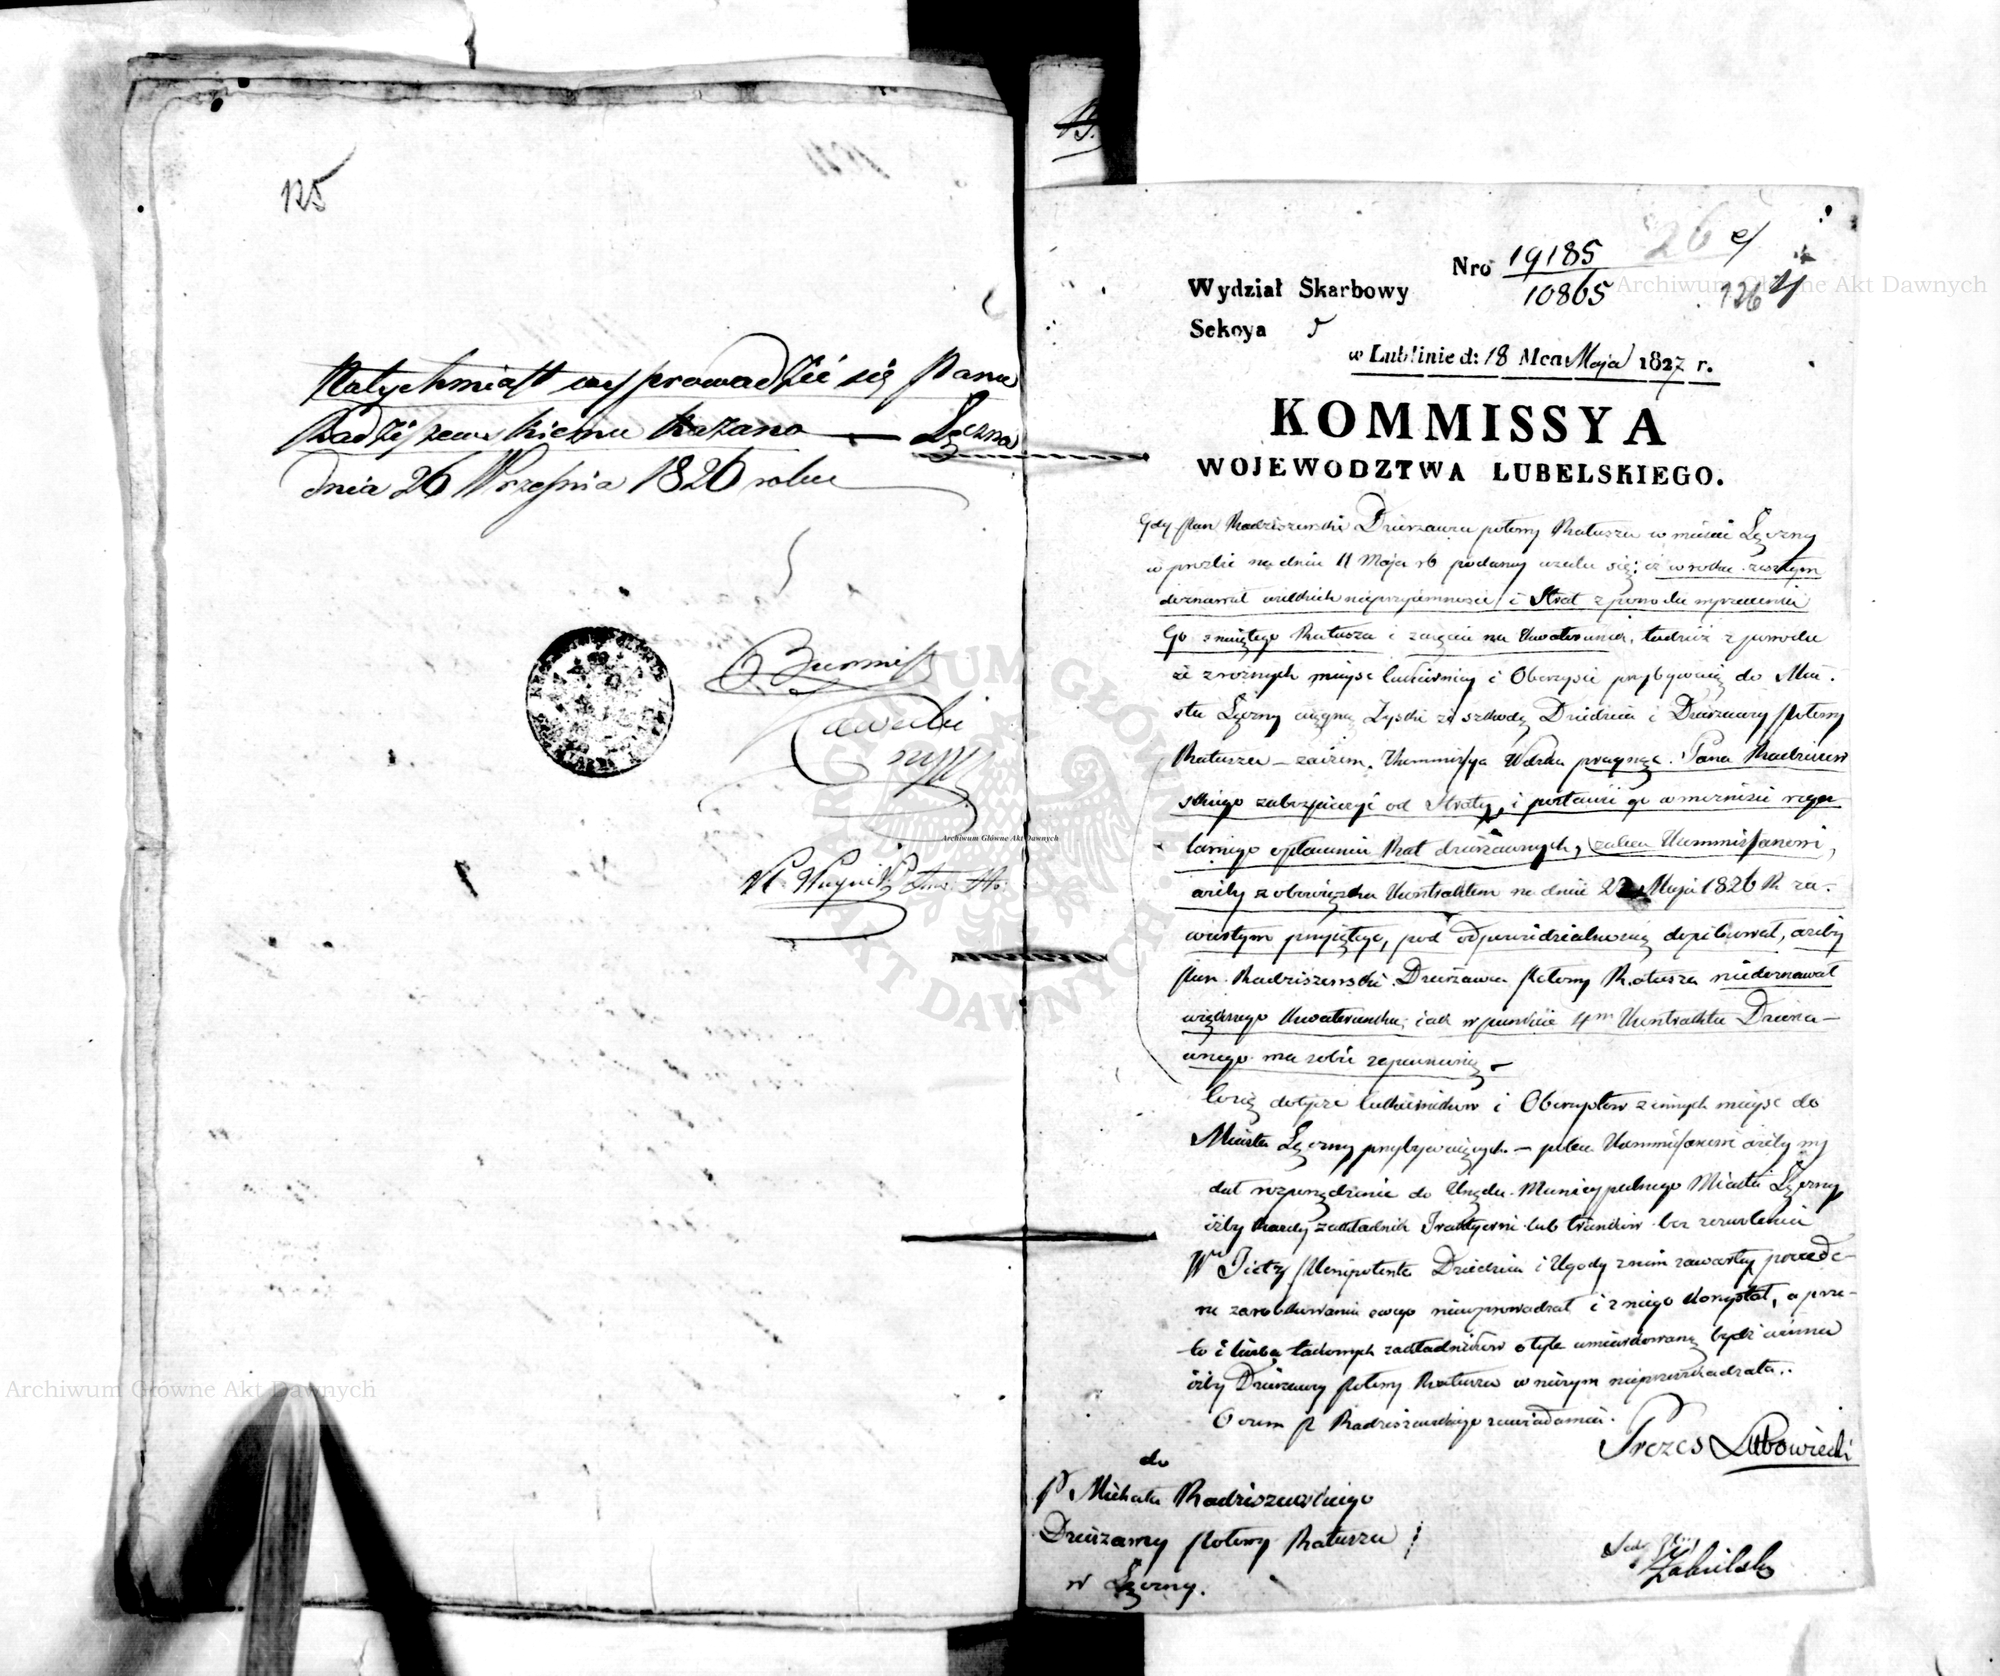 125
Natychmiast wyprowadzić się Panu
Radziszewskiemu kazano — Łęczna
dnia 26 Września 1826 roku
Burmistrz
26 e/
Nro 19185
10865
126
Wydział Skarbowy
Sekcya 5
w Lublinie d: 18 Mca Maja 1827 r.
KOMMISSYA
WOJEWODZTWA LUBELSKIEGO.
Gdy Pan Radziszewski Dzierzawca połowy Ratusza w mieście Łęczny
w prozbie na dniu 11 Maja rb podaney użala się; iż w roku zeszłym
doznawał wielkich nieprzyiemności i Strat z powodu wyrzucenia
Go z wziętego Ratusza i zaięcia na Kwaterunek, tudzież z powodu
że z roznych mieysc Cukiernicy i Oberzyści przybywaią do Mia-
sta Łęczny ciągną Zyski ze szkodą Dziedzica i Dzierzawcy Połowy
Ratusza – zaczem, Kommissya Wdzka pragnąc Pana Radziszew
skiego zabezpieczyć od Straty, i postawić go w możności regu
larnego opłacania Rat dzierżawnych, zaleca Kommissarzowi,
ażeby z obowiązku Kontraktem na dniu 22 Maja 1826 R. za-
wartym przyiętego, pod odpowiedzialnością dopilnował, ażeby
Pan Radziszewski Dzierżawca Połowy Ratusza niedoznawał
większego Kwaterunku, iak w punkcie 4m Kontraktu Dzierża-
wnego ma sobie zapewnione –
Coś się dotycze Cukierników i Oberzystów z innych mieysc do
Miasta Łęczny przybywaiących – poleca Kommissarzowi ażeby wy
dał rozporządzenie do Urzędu Municypalnego Miasta Łęczny,
iżby każdy zakładnik Traktyerni lub trunków bez zezwolenia
W Plenipotenta Dziedzica i Ugody z nim zawartey procede-
ru zarobkowania swego nieuprowadzał i z niego korzystał, a prze-
to i liczba takowych zakładników o tyle umiarkowaną bydź winna
iżby Dzierzawcy Połowy Ratusza w niczym nieprzeszkadzała.
O czem P. Radziszewskiego zawiadamia.
Prezes Lubowiecki
do
P Michała Radziszewskiego
Dzierzawcy Połowy Ratusza
w Łęczny.
Archiwum Główne Akt Dawnych
ARCHIWUM GŁÓWNE AKT DAWNYCH
Archiwum Główne Akt Dawnych
Archiwum Główne Akt Dawnych